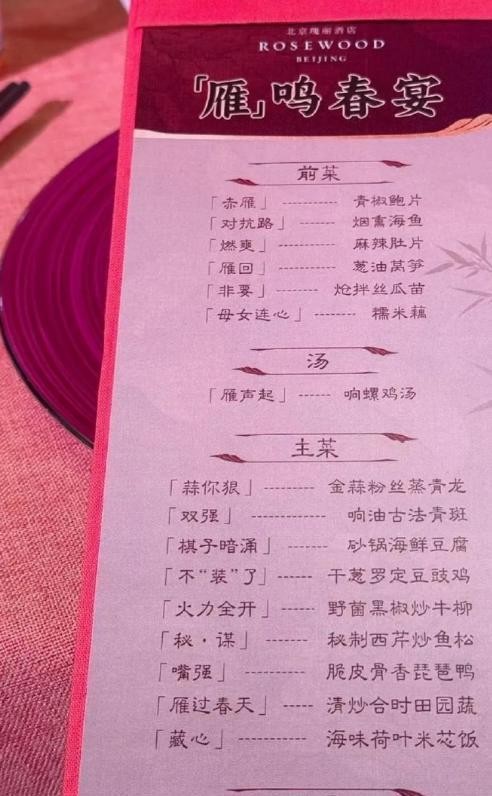 北京瑰丽酒店
ROSEWOOD
BEIJING
「雁」鸣春宴
前菜
「赤雁」 -------- 青椒鲍片
「对抗路」 ------ 烟熏海鱼
「燃爽」 -------- 麻辣肚片
「雁回」 -------- 葱油莴笋
「非要」 -------- 炝拌丝瓜苗
「母女连心」 ------ 糯米藕
汤
「雁声起」 ------ 响螺鸡汤
主菜
「蒜你狠」 -------- 金蒜粉丝蒸青龙
「双强」 ----------- 响油古法青斑
「棋子暗涌」 ------ 砂锅海鲜豆腐
「不“装”了」 ------ 干葱罗定豆豉鸡
「火力全开」 ------ 野菌黑椒炒牛柳
「秘·谋」 --------- 秘制西芹炒鱼松
「嘴强」 ---------- 脆皮骨香琵琶鸭
「雁过春天」 ------ 清炒合时田园蔬
「藏心」 ----------- 海味荷叶米苡饭